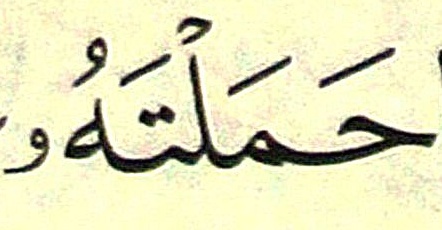 حَمَلْتَهُۥ